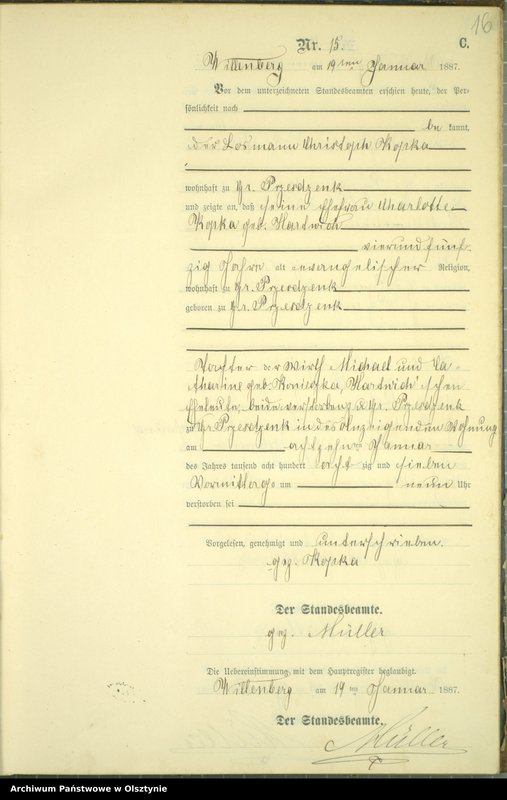 16
Nr. 15. C.
Willenberg am 19ten Januar 1887.
Vor dem unterzeichneten Standesbeamten erschien heute, der Per-
sönlichkeit nach
be kannt,
der Losmann Christoph Kopka
wohnhaft zu Gr. Przesdzenk
und zeigte an, daß seine Ehefrau Charlotte
Kopka geb. Hartwich
vierundfünf-
zig Jahre alt evangelischer Religion,
wohnhaft zu Gr. Przesdzenk
geboren zu Gr. Przesdzenk
Tochter der Wirth Michael und Ca-
tharine geb. Konieczka, Hartwich'schen
Eheleute, beide verstorben z. Gr. Przesdzenk
zu Gr. Przesdzenk in des Anzeigenden Wohnung
am achtzehnten Januar
des Jahres tausend acht hundert acht zig und sieben
Vormittags um neun Uhr
verstorben sei
Vorgelesen, genehmigt und unterschrieben.
gez. Kopka
Der Standesbeamte.
gez. Müller
Die Uebereinstimmung mit dem Hauptregister beglaubigt.
Willenberg am 19ten Januar 1887.
Der Standesbeamte.
Müller
Archiwum Państwowe w Olsztynie